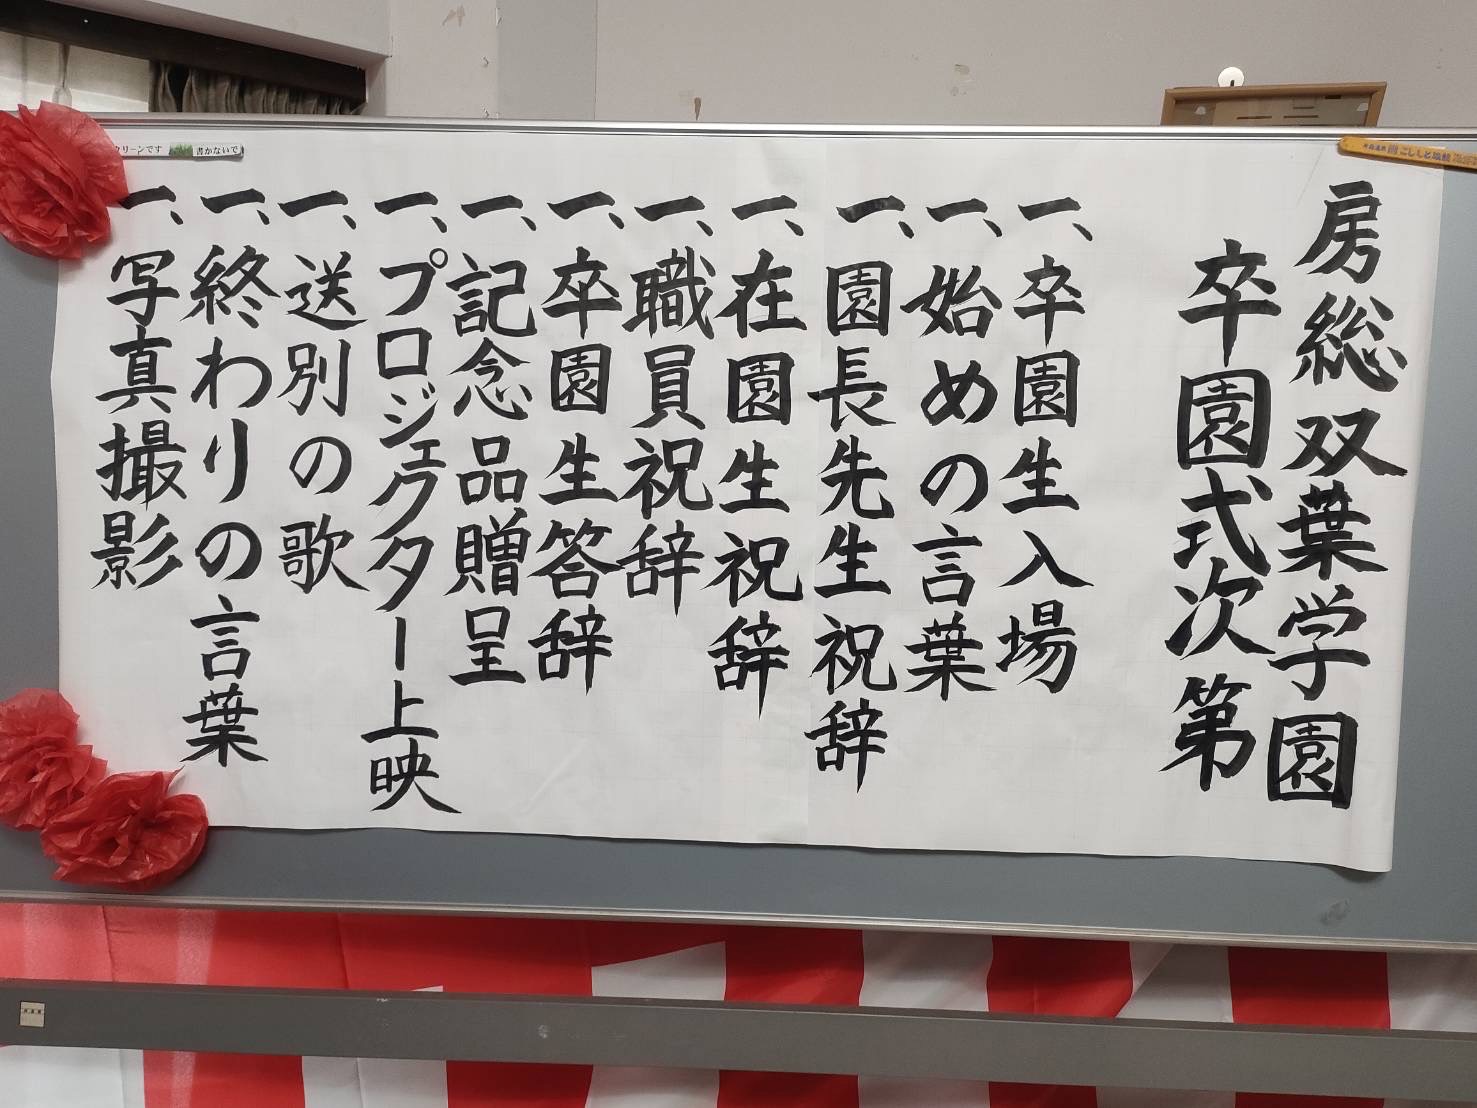 房総双葉学園
卒園式次第
一、卒園生入場
一、始めの言葉
一、園長先生祝辞
一、在園生祝辞
一、職員祝辞
一、卒園生答辞
一、記念品贈呈
一、プロジェクター上映
一、送別の歌
一、終わりの言葉
一、写真撮影
クリーンです
書かないで